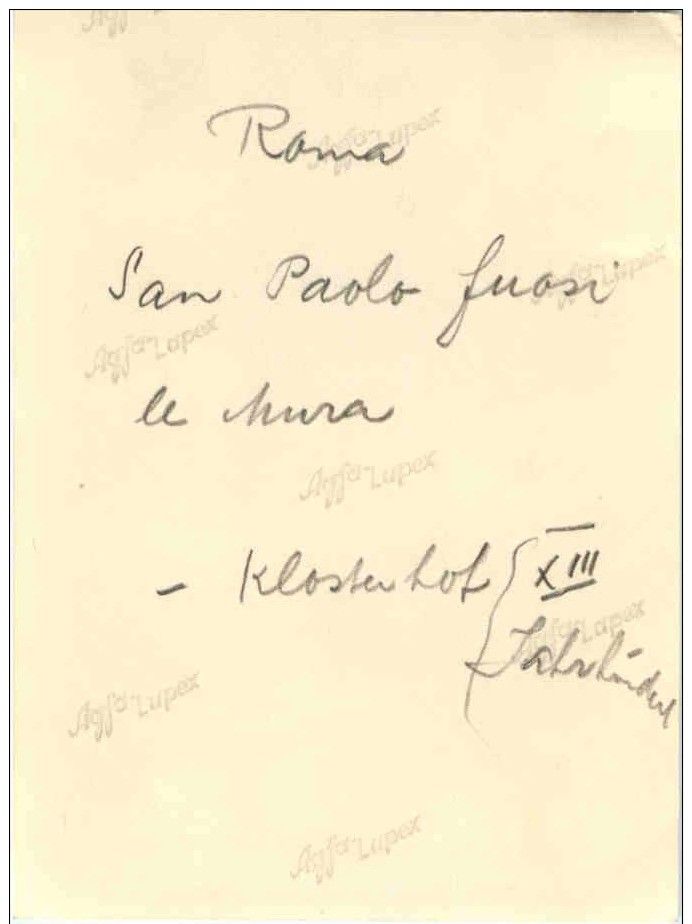 Agfa-Lupex
Roma
Agfa-Lupex
San Paolo fuori
Agfa-Lupex
Agfa-Lupex
le Mura
Agfa-Lupex
- Klosterhof { XIII
Jahrhundert
Agfa-Lupex
Agfa-Lupex
Agfa-Lupex